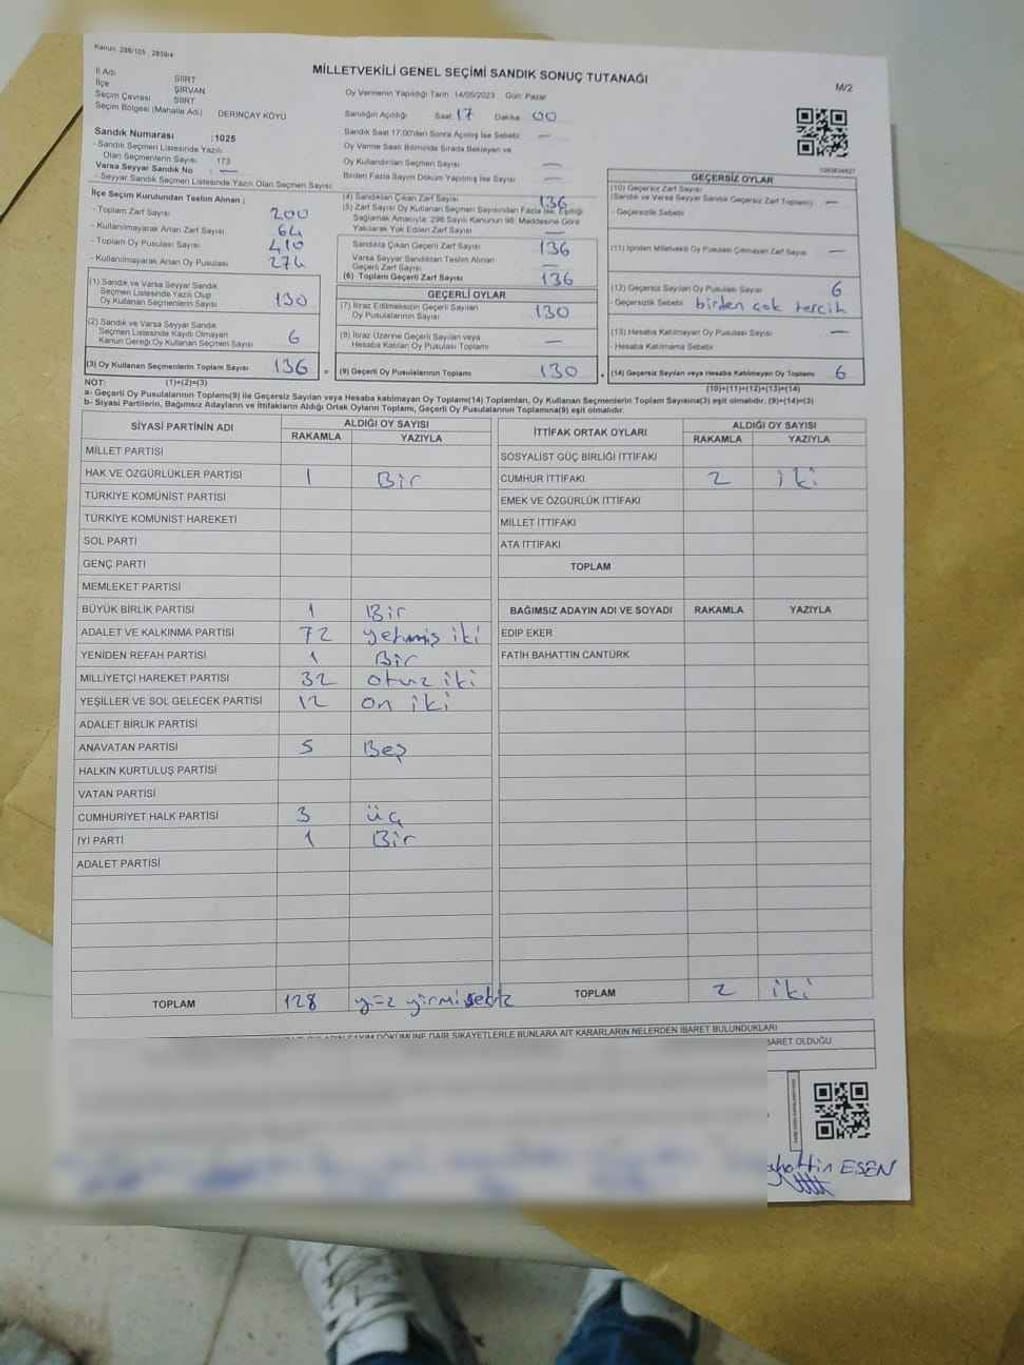 Kanun: 298/105 , 2839/4
MİLLETVEKİLİ GENEL SEÇİMİ SANDIK SONUÇ TUTANAĞI
M/2
İl Adı SİİRT
İlçe ŞİRVAN
Seçim Çevresi SİİRT
Seçim Bölgesi (Mahalle Adı) DERİNÇAY KÖYÜ
Sandık Numarası :1025
- Sandık Seçmen Listesinde Yazılı
Olan Seçmenlerin Sayısı 173
Varsa Seyyar Sandık No —
- Seyyar Sandık Seçmen Listesinde Yazılı Olan Seçmen Sayısı
Oy Vermenin Yapıldığı Tarih: 14/05/2023 Gün: Pazar
Sandığın Açıldığı Saat 17 Dakika 00
Sandık Saat 17:00'den Sonra Açılmış İse Sebebi —
Oy Verme Saati Bitiminde Sırada Bekleyen ve
Oy Kullandırılan Seçmen Sayısı —
Birden Fazla Sayım Döküm Yapılmış İse Sayısı —
İlçe Seçim Kurulundan Teslim Alınan ;
- Toplam Zarf Sayısı 200
- Kullanılmayarak Artan Zarf Sayısı 64
- Toplam Oy Pusulası Sayısı 410
- Kullanılmayarak Artan Oy Pusulası 274
(1) Sandık ve Varsa Seyyar Sandık
Seçmen Listesinde Yazılı Olup
Oy Kullanan Seçmenlerin Sayısı 130
(2) Sandık ve Varsa Seyyar Sandık
Seçmen Listesinde Kaydı Olmayan
Kanun Gereği Oy Kullanan Seçmen Sayısı 6
(3) Oy Kullanan Seçmenlerin Toplam Sayısı 136 =
(4) Sandıktan Çıkan Zarf Sayısı 136
(5) Zarf Sayısı Oy Kullanan Seçmen Sayısından Fazla İse, Eşitliği
Sağlamak Amacıyla; 298 Sayılı Kanunun 98. Maddesine Göre
Yakılarak Yok Edilen Zarf Sayısı —
Sandıkta Çıkan Geçerli Zarf Sayısı 136
Varsa Seyyar Sandıktan Teslim Alınan
Geçerli Zarf Sayısı —
(6) Toplam Geçerli Zarf Sayısı 136
GEÇERLİ OYLAR
(7) İtiraz Edilmeksizin Geçerli Sayılan
Oy Pusulalarının Sayısı 130
(8) İtiraz Üzerine Geçerli Sayılan veya
Hesaba Katılan Oy Pusulası Toplamı —
(9) Geçerli Oy Pusulalarının Toplamı 130 +
GEÇERSİZ OYLAR
(10) Geçersiz Zarf Sayısı
(Sandık ve Varsa Seyyar Sandık Geçersiz Zarf Toplamı) —
- Geçersizlik Sebebi
(11) İçinden Milletvekili Oy Pusulası Çıkmayan Zarf Sayısı —
(12) Geçersiz Sayılan Oy Pusulası Sayısı 6
- Geçersizlik Sebebi birden çok tercih
(13) Hesaba Katılmayan Oy Pusulası Sayısı —
- Hesaba Katılmama Sebebi
(14) Geçersiz Sayılan veya Hesaba Katılmayan Oy Toplamı 6
NOT: (1)+(2)=(3)
(10)+(11)+(12)+(13)=(14)
a- Geçerli Oy Pusulalarının Toplamı(9) ile Geçersiz Sayılan veya Hesaba katılmayan Oy Toplamı(14) Toplamları, Oy Kullanan Seçmenlerin Toplam Sayısına(3) eşit olmalıdır. (9)+(14)=(3)
b- Siyasi Partilerin, Bağımsız Adayların ve İttifakların Aldığı Ortak Oyların Toplamı, Geçerli Oy Pusulalarının Toplamına(9) eşit olmalıdır.
SİYASİ PARTİNİN ADI
ALDIĞI OY SAYISI
RAKAMLA YAZIYLA
MİLLET PARTİSİ
HAK VE ÖZGÜRLÜKLER PARTİSİ 1 Bir
TÜRKİYE KOMÜNİST PARTİSİ
TÜRKİYE KOMÜNİST HAREKETİ
SOL PARTİ
GENÇ PARTİ
MEMLEKET PARTİSİ
BÜYÜK BİRLİK PARTİSİ 1 Bir
ADALET VE KALKINMA PARTİSİ 72 yetmiş iki
YENİDEN REFAH PARTİSİ 1 Bir
MİLLİYETÇİ HAREKET PARTİSİ 32 otuz iki
YEŞİLLER VE SOL GELECEK PARTİSİ 12 on iki
ADALET BİRLİK PARTİSİ
ANAVATAN PARTİSİ 5 Beş
HALKIN KURTULUŞ PARTİSİ
VATAN PARTİSİ
CUMHURİYET HALK PARTİSİ 3 üç
İYİ PARTİ 1 Bir
ADALET PARTİSİ
TOPLAM 128 yüz yirmi sekiz
İTTİFAK ORTAK OYLARI
ALDIĞI OY SAYISI
RAKAMLA YAZIYLA
SOSYALİST GÜÇ BİRLİĞİ İTTİFAKI
CUMHUR İTTİFAKI 2 iki
EMEK VE ÖZGÜRLÜK İTTİFAKI
MİLLET İTTİFAKI
ATA İTTİFAKI
TOPLAM
BAĞIMSIZ ADAYIN ADI VE SOYADI RAKAMLA YAZIYLA
EDİP EKER
FATİH BAHATTİN CANTÜRK
TOPLAM 2 iki
SAYIM DÖKÜMÜNE DAİR ŞİKAYETLERLE BUNLARA AİT KARARLARIN NELERDEN İBARET BULUNDUKLARI
BARET OLDUĞU
ahattin ESEN